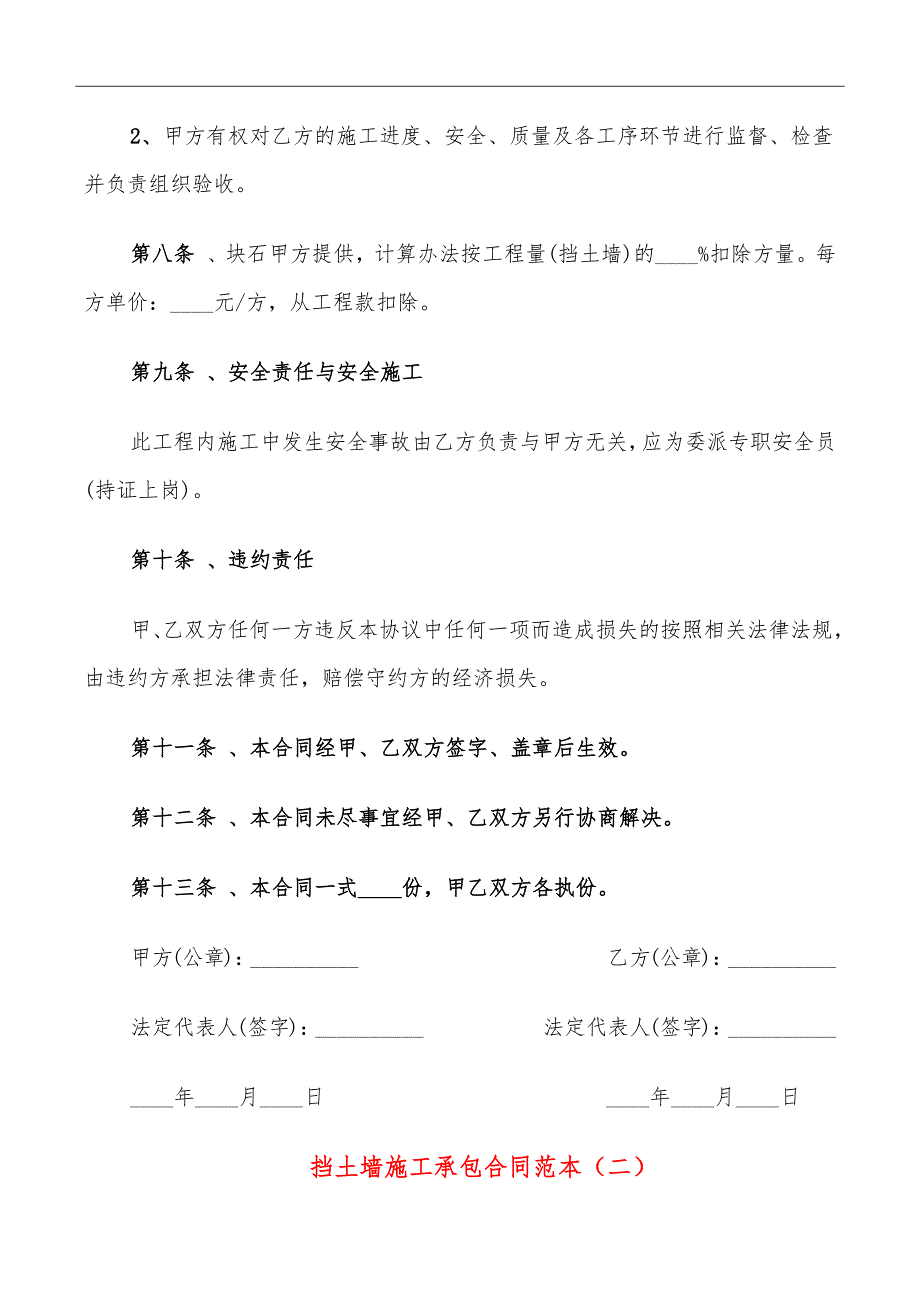 2、甲方有权对乙方的施工进度、安全、质量及各工序环节进行监督、检查
并负责组织验收。
第八条 、块石甲方提供，计算办法按工程量(挡土墙)的____%扣除方量。每
方单价：____元/方，从工程款扣除。
第九条 、安全责任与安全施工
此工程内施工中发生安全事故由乙方负责与甲方无关，应为委派专职安全员
(持证上岗)。
第十条 、违约责任
甲、乙双方任何一方违反本协议中任何一项而造成损失的按照相关法律法规，
由违约方承担法律责任，赔偿守约方的经济损失。
第十一条 、本合同经甲、乙双方签字、盖章后生效。
第十二条 、本合同未尽事宜经甲、乙双方另行协商解决。
第十三条 、本合同一式____份，甲乙双方各执份。
甲方(公章)：__________ 乙方(公章)：__________
法定代表人(签字)：__________ 法定代表人(签字)：__________
____年____月____日 ____年____月____日
挡土墙施工承包合同范本（二）